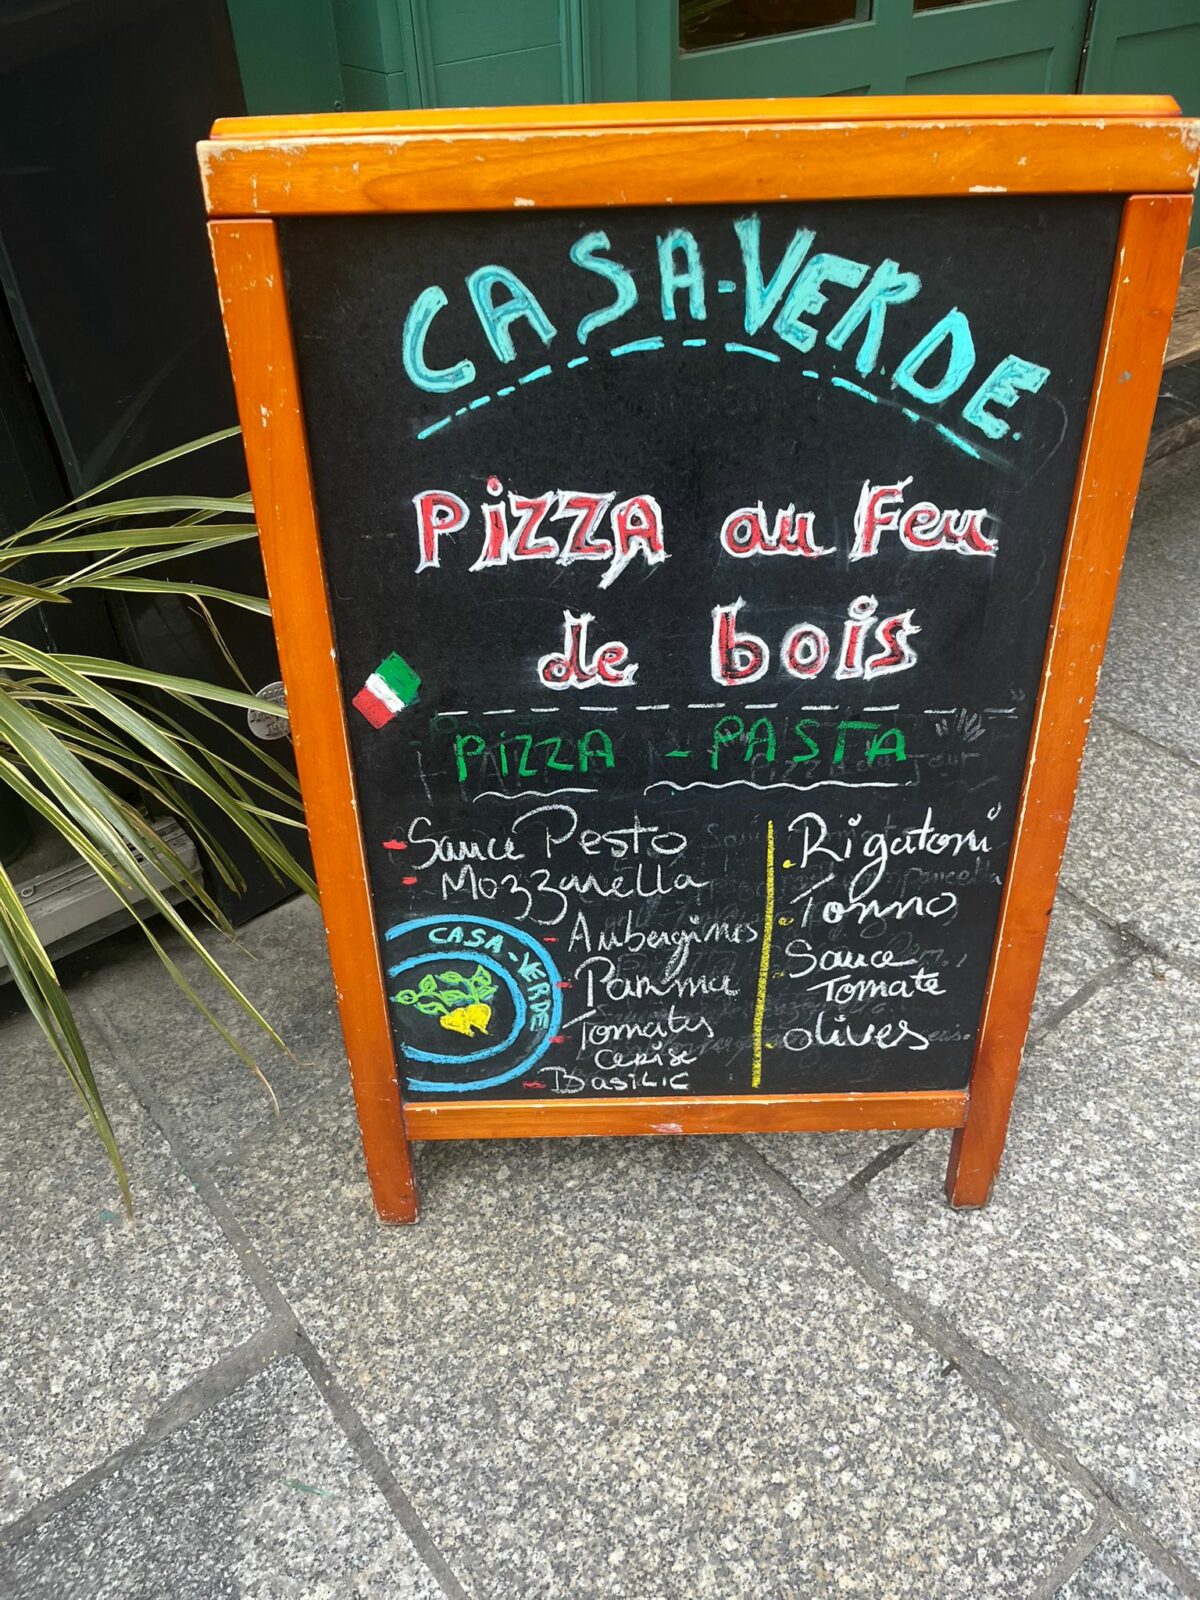 CASA-VERDE.
PIZZA au Feu
de bois
PIZZA - PASTA
- Sauce Pesto
- Mozzarella
- Aubergines
- Parma
- Tomates
cerise
- Basilic
CASA-VERDE
. Rigatoni
. Tonno
. Sauce
Tomate
. olives